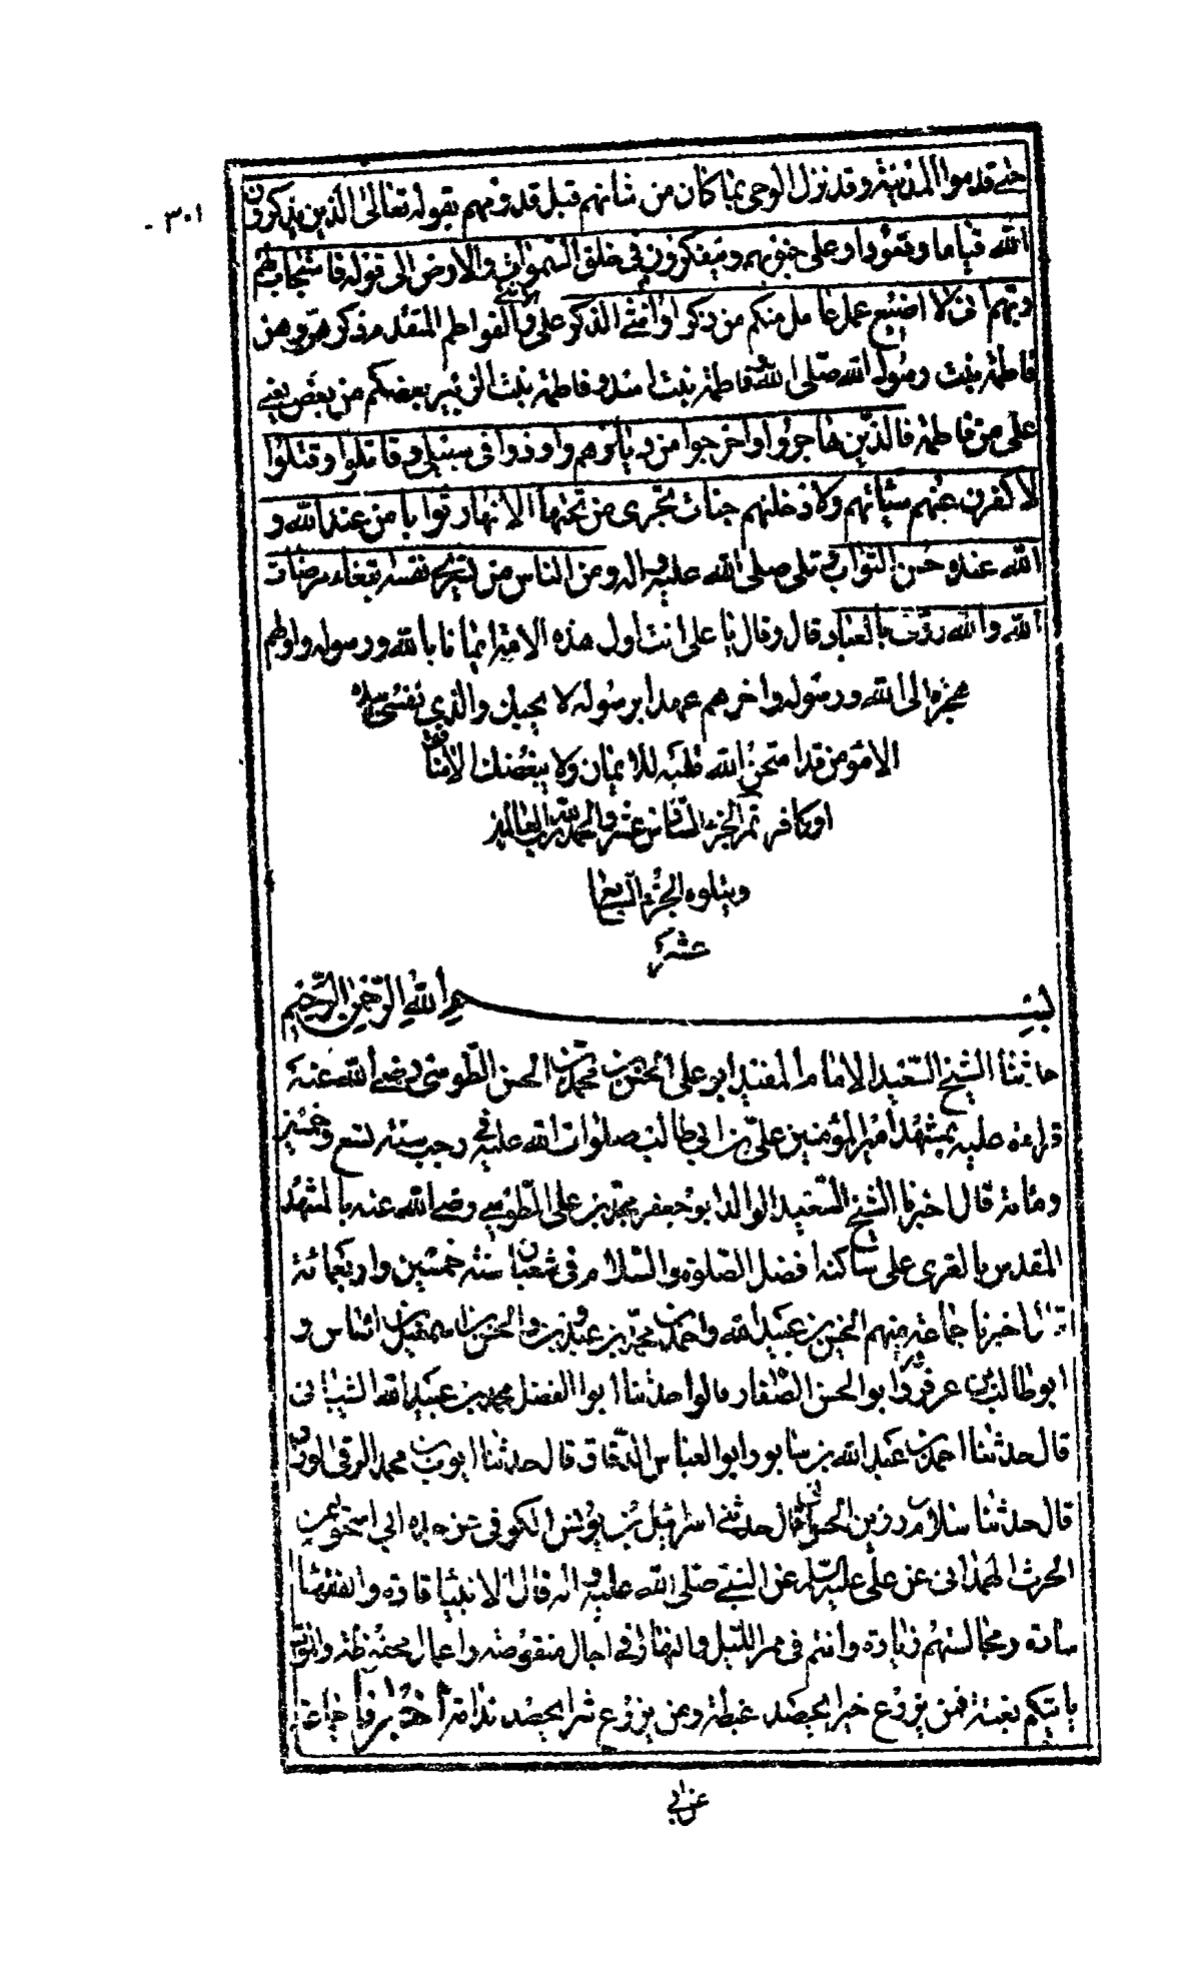 ٣٠١
حتى قدموا المدينة وقد نزل الوحى بما كان من شانهم قبل قدومهم بقوله تعالى الذين يذكرون
الله قياما وقعودا وعلى جنوبهم ويتفكرون فى خلق السموات والارض الى قوله فاستجاب لهم
ربهم انى لا اضيع عمل عامل منكم من ذكر او انثى الذكر على والانثى الفواطم المتقدم ذكرهن وهن
فاطمة بنت رسول الله صلى الله وفاطمة بنت اسد وفاطمة بنت الزبير بعضكم من بعض يعنى
على من فاطمة فالذين هاجروا واخرجوا من ديارهم واوذوا فى سبيلى وقاتلوا وقتلوا
لاكفرن عنهم سيئاتهم ولادخلنهم جنات تجرى من تحتها الانهار ثوابا من عند الله و
الله عنده حسن الثواب وتلى صلى الله عليه واله ومن الناس من يشرى نفسه ابتغاء مرضات
الله والله رؤف بالعباد قال وقال يا على انت اول هذه الامة ايمانا بالله ورسوله واولهم
هجرة الى الله ورسوله واخرهم عهدا برسوله لا يحبك والذى نفسى بيده
الا مؤمن قد امتحن الله قلبه للايمان ولا يبغضك الا منافق
او كافر تم الجزء السادس عشر والحمد لله رب العالمين
ويتلوه الجزء السابع
عشر
بسم الله الرحمن الرحيم
حدثنا الشيخ السعيد الامام المفيد ابو على الحسن بن محمد بن الحسن الطوسى رضى الله عنه
قراءة عليه بمشهد امير المؤمنين على بن ابى طالب صلوات الله عليه فى رجب سنة تسع وخمسين
ومائة قال اخبرنا الشيخ السعيد الوالد ابو جعفر محمد بن على الطوسى رضى الله عنه بالمشهد
المقدس بالغرى على ساكنه افضل الصلوة والسلام فى شعبان سنة خمسين واربعمائة
اخبرنا جماعة منهم الحسين بن عبيد الله واحمد بن محمد بن عبدون والحسن بن اسمعيل بن اشناس و
ابو طالب بن عرفور وابو الحسن الصفار قالوا حدثنا ابو المفضل محمد بن عبيد الله الشيبانى
قال حدثنا احمد بن عبد الله بن سابور وابو العباس الدقاق قال حدثنا ايوب بن محمد الرقى الوزان
قال حدثنا سلام بن رزين الحرانى قال حدثنى اسرائيل بن يونس الكوفى عن جده ابى اسحق عن
الحرث الهمدانى عن على عليه السلم عن النبى صلى الله عليه واله قال الانبياء قادة والفقهاء
سادة ومجالستهم زيادة وانتم فى ممر الليل والنهار فى اجال منقوصة واعمال محفوظة والموت
ياتيكم بغتة فمن يزرع خيرا يحصد غبطة ومن يزرع شرا يحصد ندامة اخبرنا جماعة
عن ابى